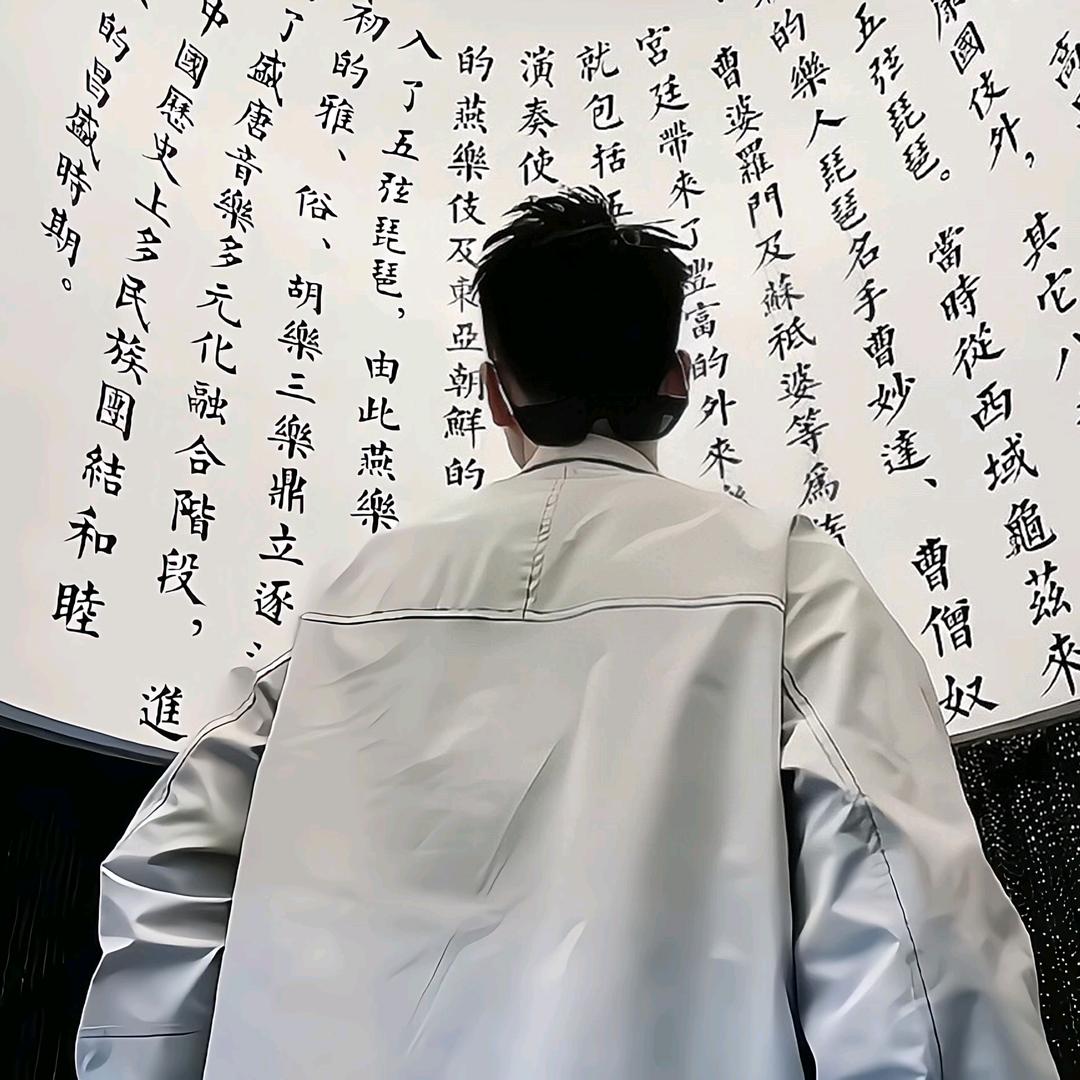 康國伎外，其它八
五弦琵琶。當時從西域龜茲來
的樂人琵琶名手曹妙達、曹僧奴
曹婆羅門及蘇祇婆等爲隋
宮廷帶來了豐富的外來
就包括五
演奏使
的燕樂伎及東亞朝鮮的
入了五弦琵琶，由此燕樂
初的雅、俗、胡樂三樂鼎立逐
了盛唐音樂多元化融合階段，進
中國歷史上多民族團結和睦
的昌盛時期。